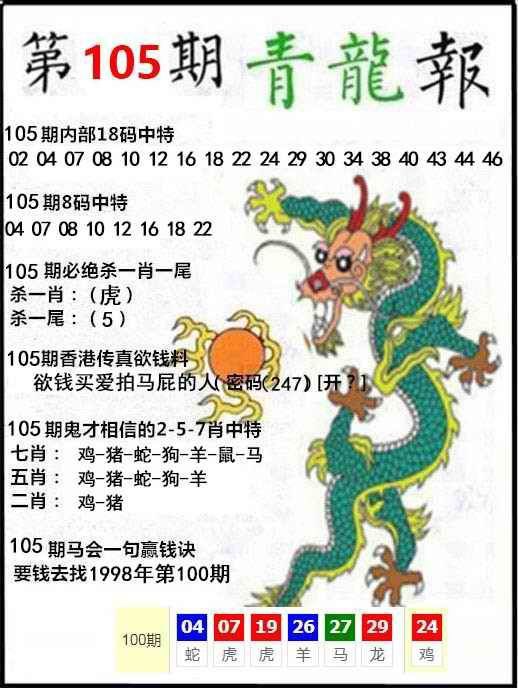 第105期青龍報
105期内部18码中特
02 04 07 08 10 12 16 18 22 24 29 30 34 38 40 43 44 46
105期8码中特
04 07 08 10 12 16 18 22
105期必绝杀一肖一尾
杀一肖：（虎）
杀一尾：（5）
105期香港传真欲钱料
欲钱买爱拍马屁的人(密码(247)[开？]
105期鬼才相信的2-5-7肖中特
七肖： 鸡-猪-蛇-狗-羊-鼠-马
五肖： 鸡-猪-蛇-狗-羊
二肖： 鸡-猪
105期马会一句赢钱诀
要钱去找1998年第100期
100期 04 07 19 26 27 29 24
蛇 虎 虎 羊 马 龙 鸡